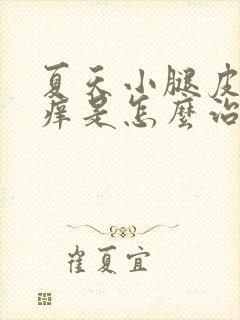 夏天小腿皮
痒是怎麼治
崔夏宜